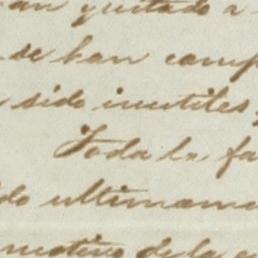 an quitado a
se han comp
sido inutiles
Toda la fa
do ultimame
motivo de la